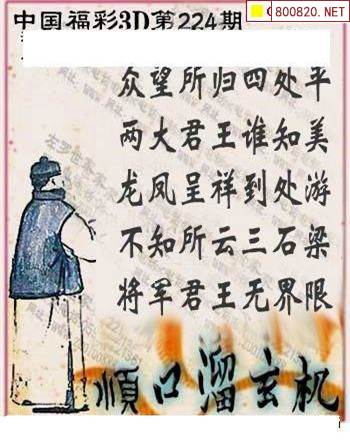 800820.NET
中国福彩3D第224期
众望所归四处平
两大君王谁知美
龙凤呈祥到处游
不知所云三石梁
将军君王无界限
顺口溜玄机